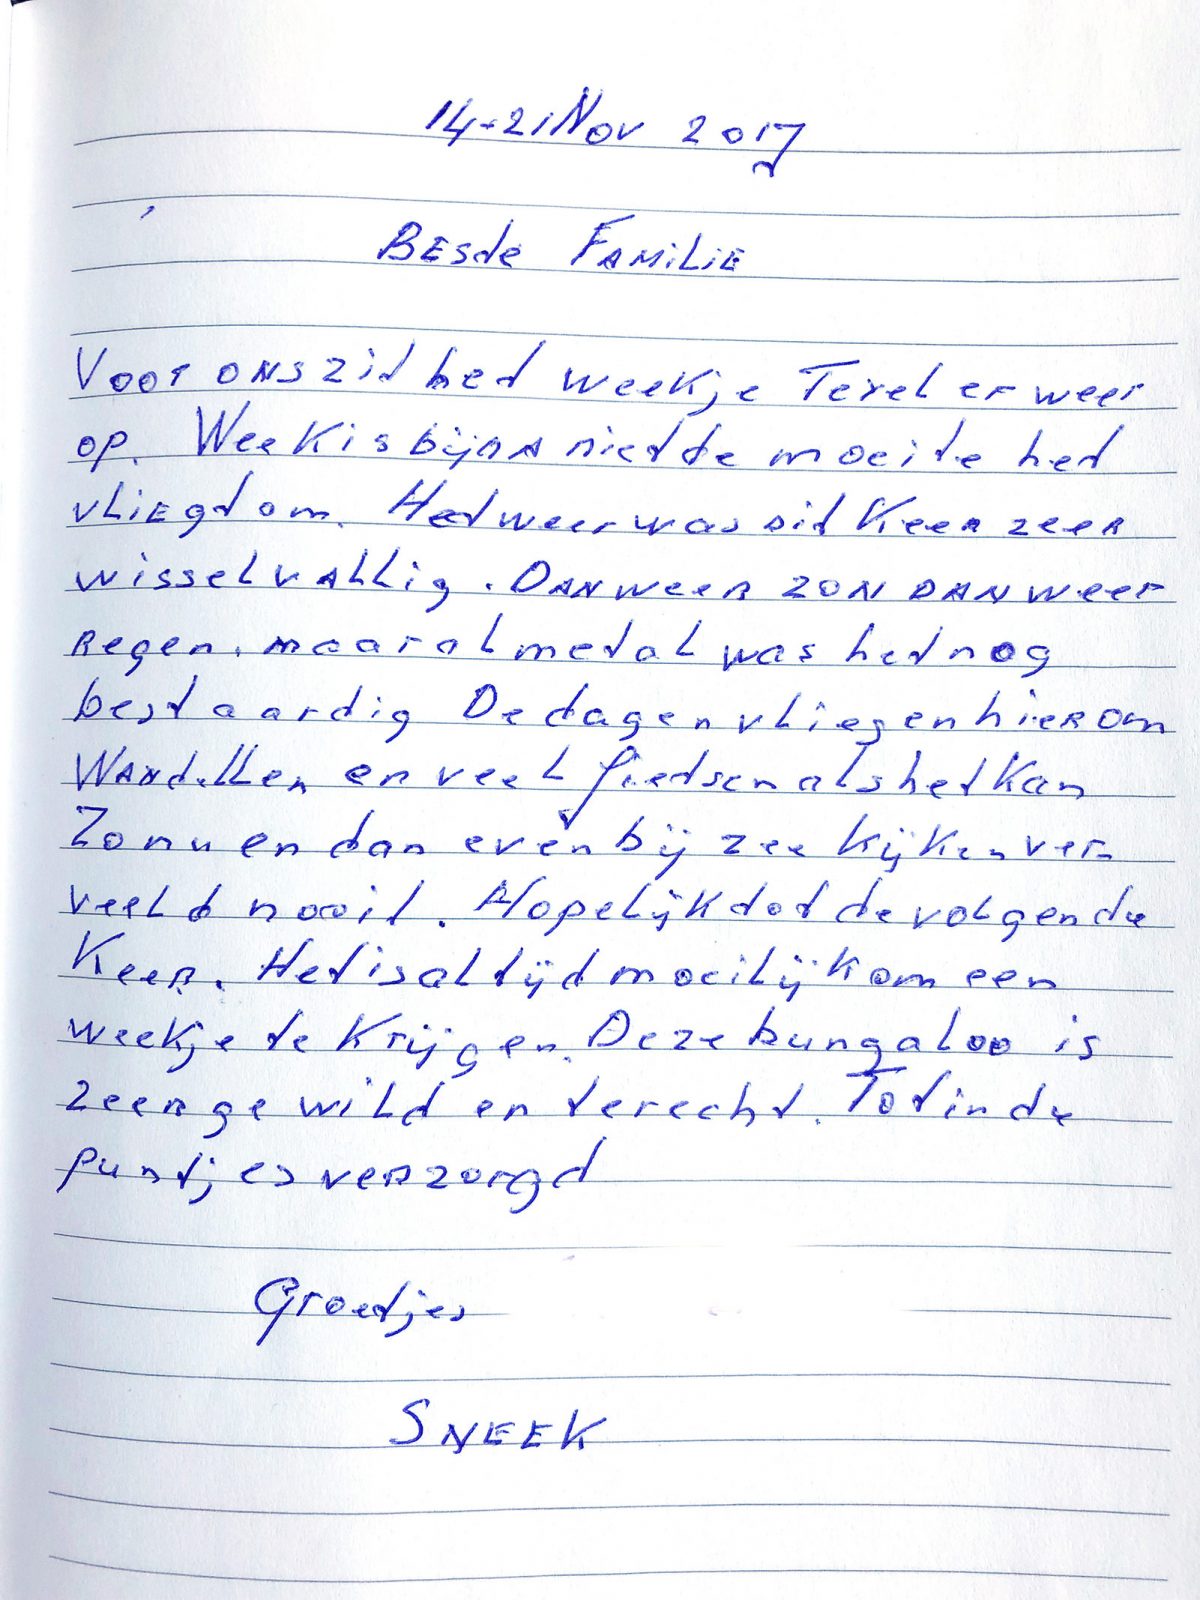 14-21 Nov 2017
Beste Familie
Voor ons zit het weekje Texel er weer
op. Week is bijna niet de moeite het
vliegt om. Het weer was dit keer zeer
wisselvallig. Dan weer zon dan weer
regen. maar al met al was het nog
best aardig De dagen vliegen hier om
Wandellen en veel fietsen als het kan
Zo nu en dan even bij zee kijken ver-
veeld nooit. Hopelijk tot de volgende
Keer. Het is altijd moeilijk om een
weekje te krijgen. Deze bungaloo is
zeer gewild en terecht. Tot in de
puntjes verzorgd
Groetjes
SNEEK